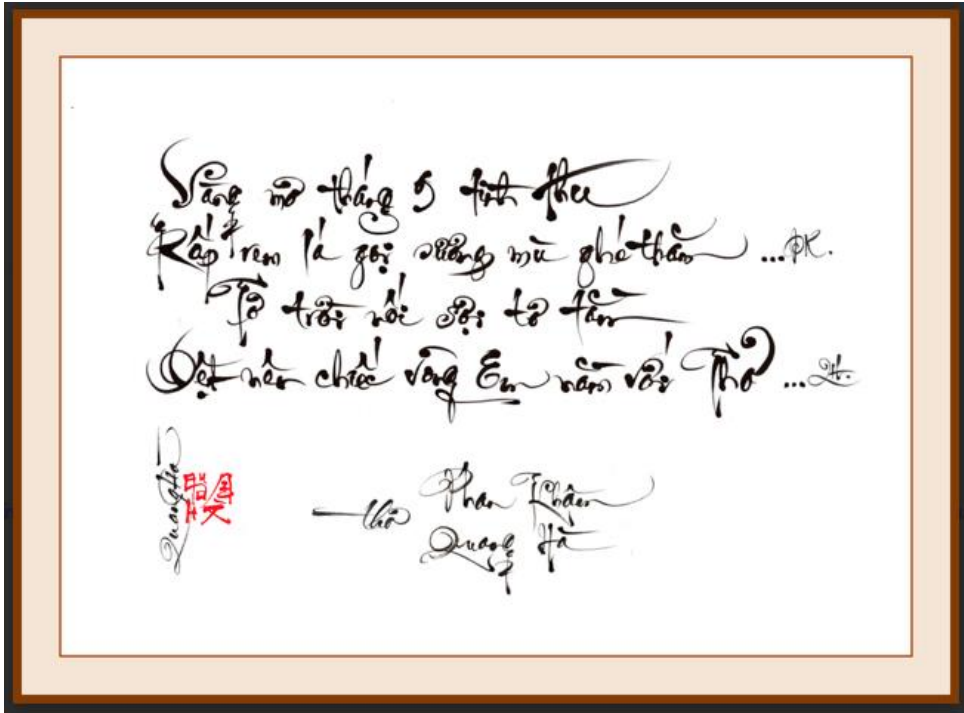 Vàng mơ tháng 9 tình thu
Rấp rem lá gọi sương mù ghé thăm ...PK.
Tơ trời nối sợi tơ tằm
Dệt nên chiếc võng Em nằm với Thơ ...QH.
thơ Phan Khâm
Quang Hà
Quang Hà